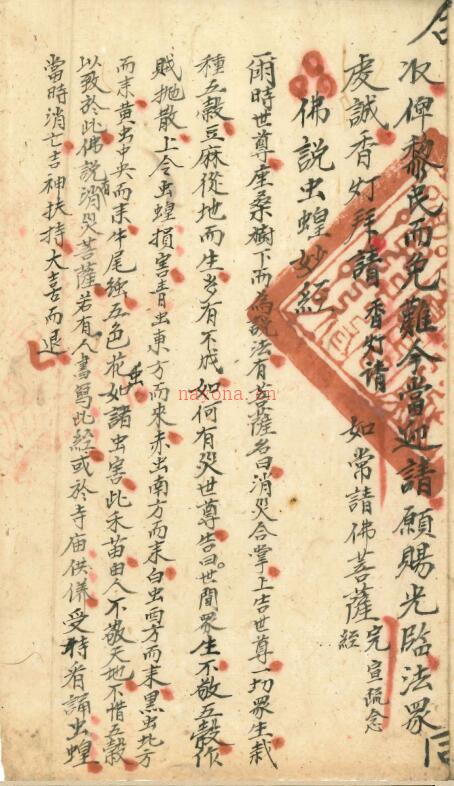 俾黎民而免難今當迎請願賜光臨法眾
虔誠香灯拜請 香灯请 如常請佛菩薩 完宣疏念經
佛説虫蝗妙經
爾時世尊座桑樹下而為説法有菩薩名曰消災合掌上告世尊一切眾生栽
種五穀豆麻從地而生皆有不成如何有災世尊告曰世間眾生不敬五穀作
賤拋散上令虫蝗損害青虫東方而來赤虫南方而来白虫西方而来黑虫北方
而来黄虫中央而来牛尾 五色花虫如諸虫害此禾苗由人不敬天地不惜五穀
以致於此佛説消災菩薩若有人書寫此經或於寺庙供儀受持看誦虫蝗
當時消亡吉神扶持大喜而退
naxona.cn